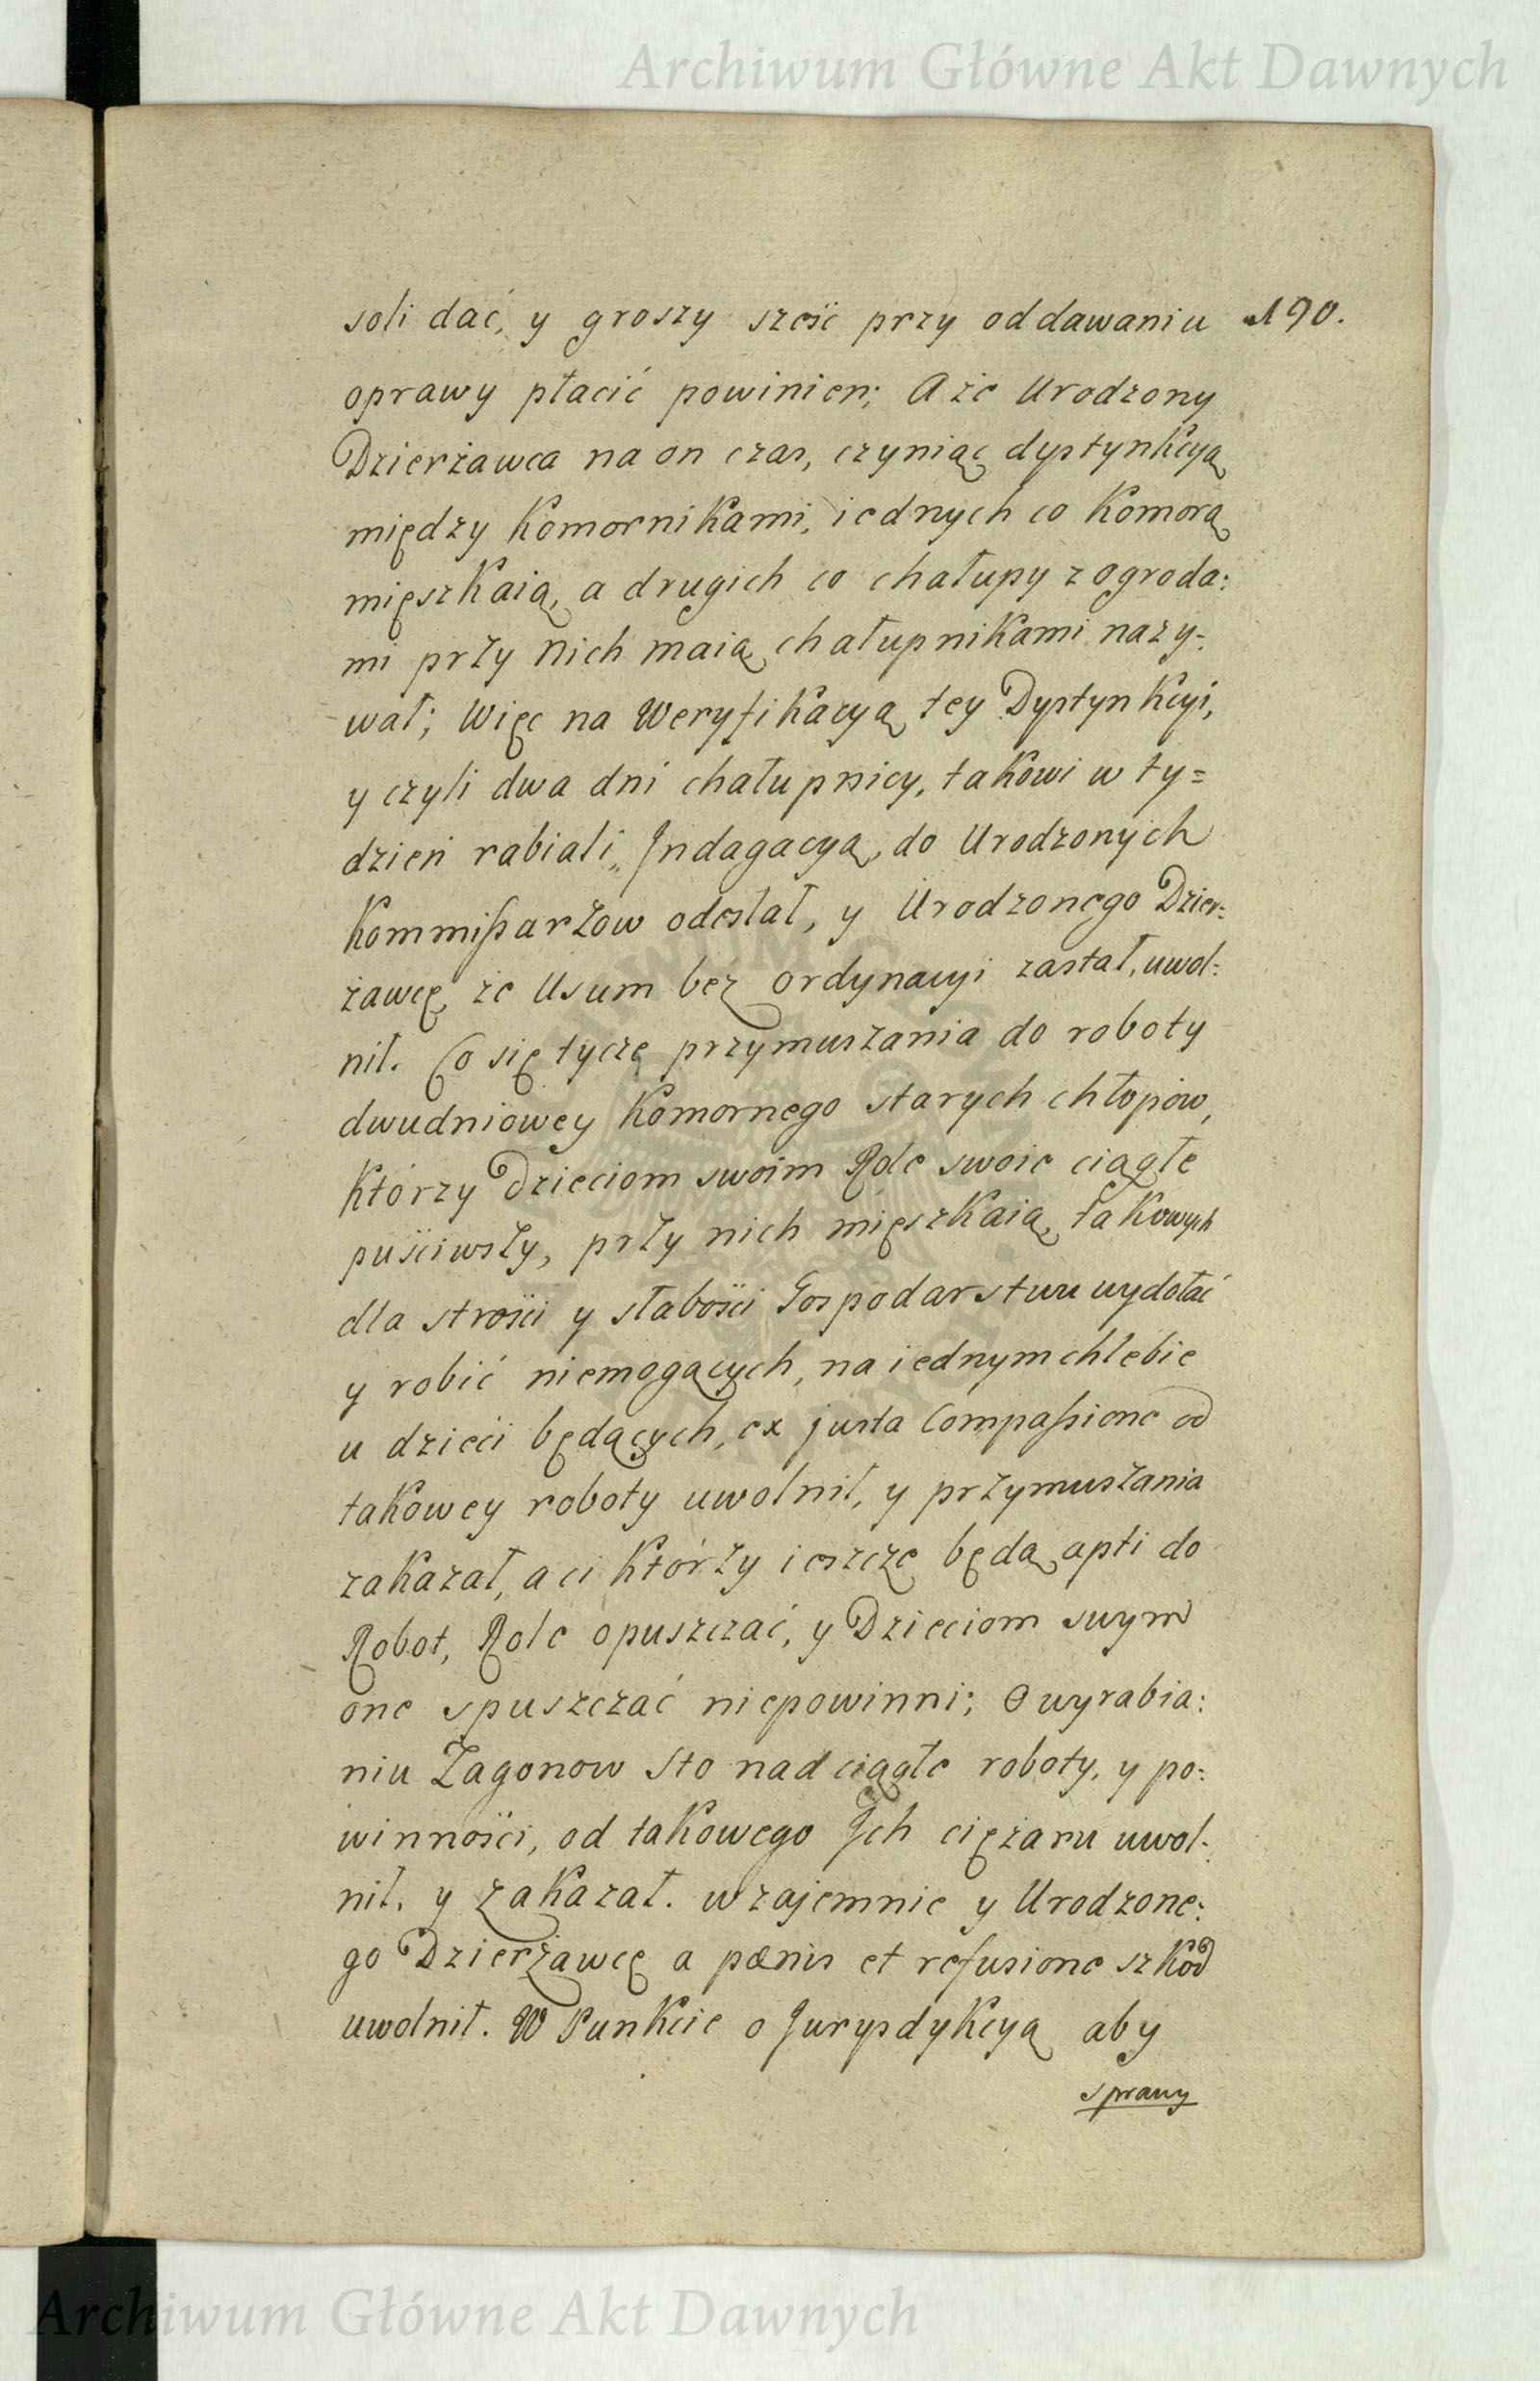 Archiwum Główne Akt Dawnych
soli dać, y groszy szesć przy oddawaniu 190.
oprawy płacić powinien; A że Urodzony
Dzierżawca na on czas, czyniąc dystynkcyą
między Komornikami, iednych co Komorą
mięszkaią, a drugich co chałupy z ogroda:
mi przy nich maią chałupnikami nazy:
wał; Więc na Weryfikacyą tey Dystynkcyi,
y czyli dwa dni chałupnicy, takowi w ty=
dzień rabiali, Indagacyą, do Urodzonych
Kommißarzow odesłał, y Urodzonego Dzier:
żawcę, że Usum bez ordynacyi zastał, uwol:
nił. Co się tycze przymuszania do roboty
dwudniowey Komornego starych chłopow,
Którzy Dzieciom swoim Role swoie ciągłe
puściwszy, przy nich mięszkaią, takowych
dla strości y słabości Gospodarstwu wydołać
y robić niemogących, na iednym chlebie
u dzieci będących, ex justa Compaßione od
takowey roboty uwolnił, y przymuszania
zakazał, a ci Którzy ieszcze będą apti do
Robot, Role opuszczać, y Dzieciom swym
one spuszczać niepowinni; O wyrabia:
niu Zagonow Sto nad ciągłe roboty, y po:
winności, od takowego Ich ciężaru uwol:
nił. y zakazał. wzajemnie y Urodzone:
go Dzierżawcę a pœnis et refusione szkod
uwolnił. W Punkcie o Jurysdykcyą aby
sprawy
Archiwum Główne Akt Dawnych